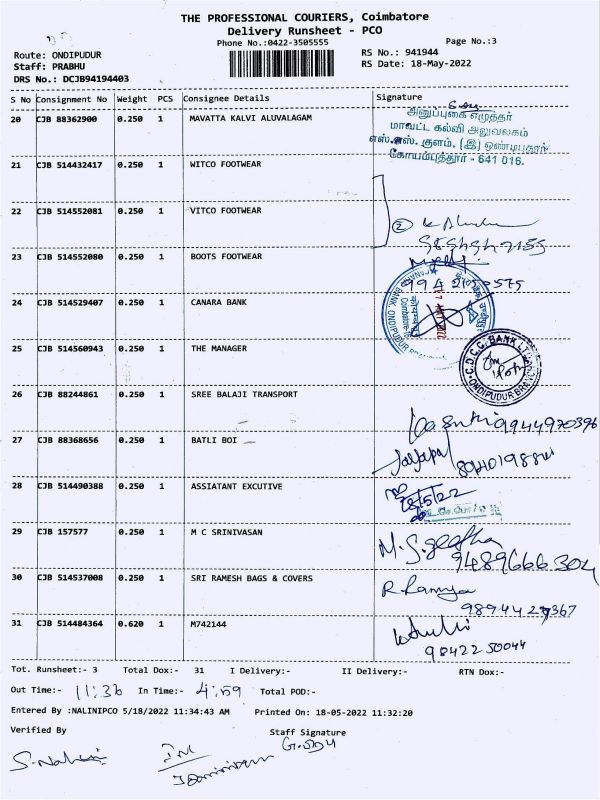 THE PROFESSIONAL COURIERS, Coimbatore
Delivery Runsheet - PCO
Phone No.:0422-3505555
Page No.:3
Route: ONDIPUDUR
RS No.: 941944
Staff: PRABHU
RS Date: 18-May-2022
DRS No.: DCJB94194403
S No Consignment No Weight PCS Consignee Details Signature
20 CJB 88362900 0.250 1 MAVATTA KALVI ALUVALAGAM
அனுப்புகை எழுத்தர்
மாவட்ட கல்வி அலுவலகம்
எஸ்.எஸ். குளம், (இ) ஒண்டிபுதூர்
கோயம்புத்தூர் - 641 016.
21 CJB 514432417 0.250 1 WITCO FOOTWEAR
22 CJB 514552081 0.250 1 VITCO FOOTWEAR
2
23 CJB 514552080 0.250 1 BOOTS FOOTWEAR
24 CJB 514529407 0.250 1 CANARA BANK
BANK, ONDIPUDUR
25 CJB 514560943 0.250 1 THE MANAGER
C.D.C.C. BANK LTD
ONDIPUDUR BRANCH
26 CJB 88244861 0.250 1 SREE BALAJI TRANSPORT
9944970396
27 CJB 88368656 0.250 1 BATLI BOI
Jayapal
28 CJB 514490388 0.250 1 ASSIATANT EXCUTIVE
18/5/22
29 CJB 157577 0.250 1 M C SRINIVASAN
M.S.geetha
9489666304
30 CJB 514537008 0.250 1 SRI RAMESH BAGS & COVERS
R Ramya
9894427367
31 CJB 514484364 0.620 1 M742144
9842250044
Tot. Runsheet:- 3 Total Dox:- 31 I Delivery:- II Delivery:- RTN Dox:-
Out Time:- 11:36 In Time:- 4:59 Total POD:-
Entered By :NALINIPCO 5/18/2022 11:34:43 AM Printed On: 18-05-2022 11:32:20
Verified By
Staff Signature
S.Nalini